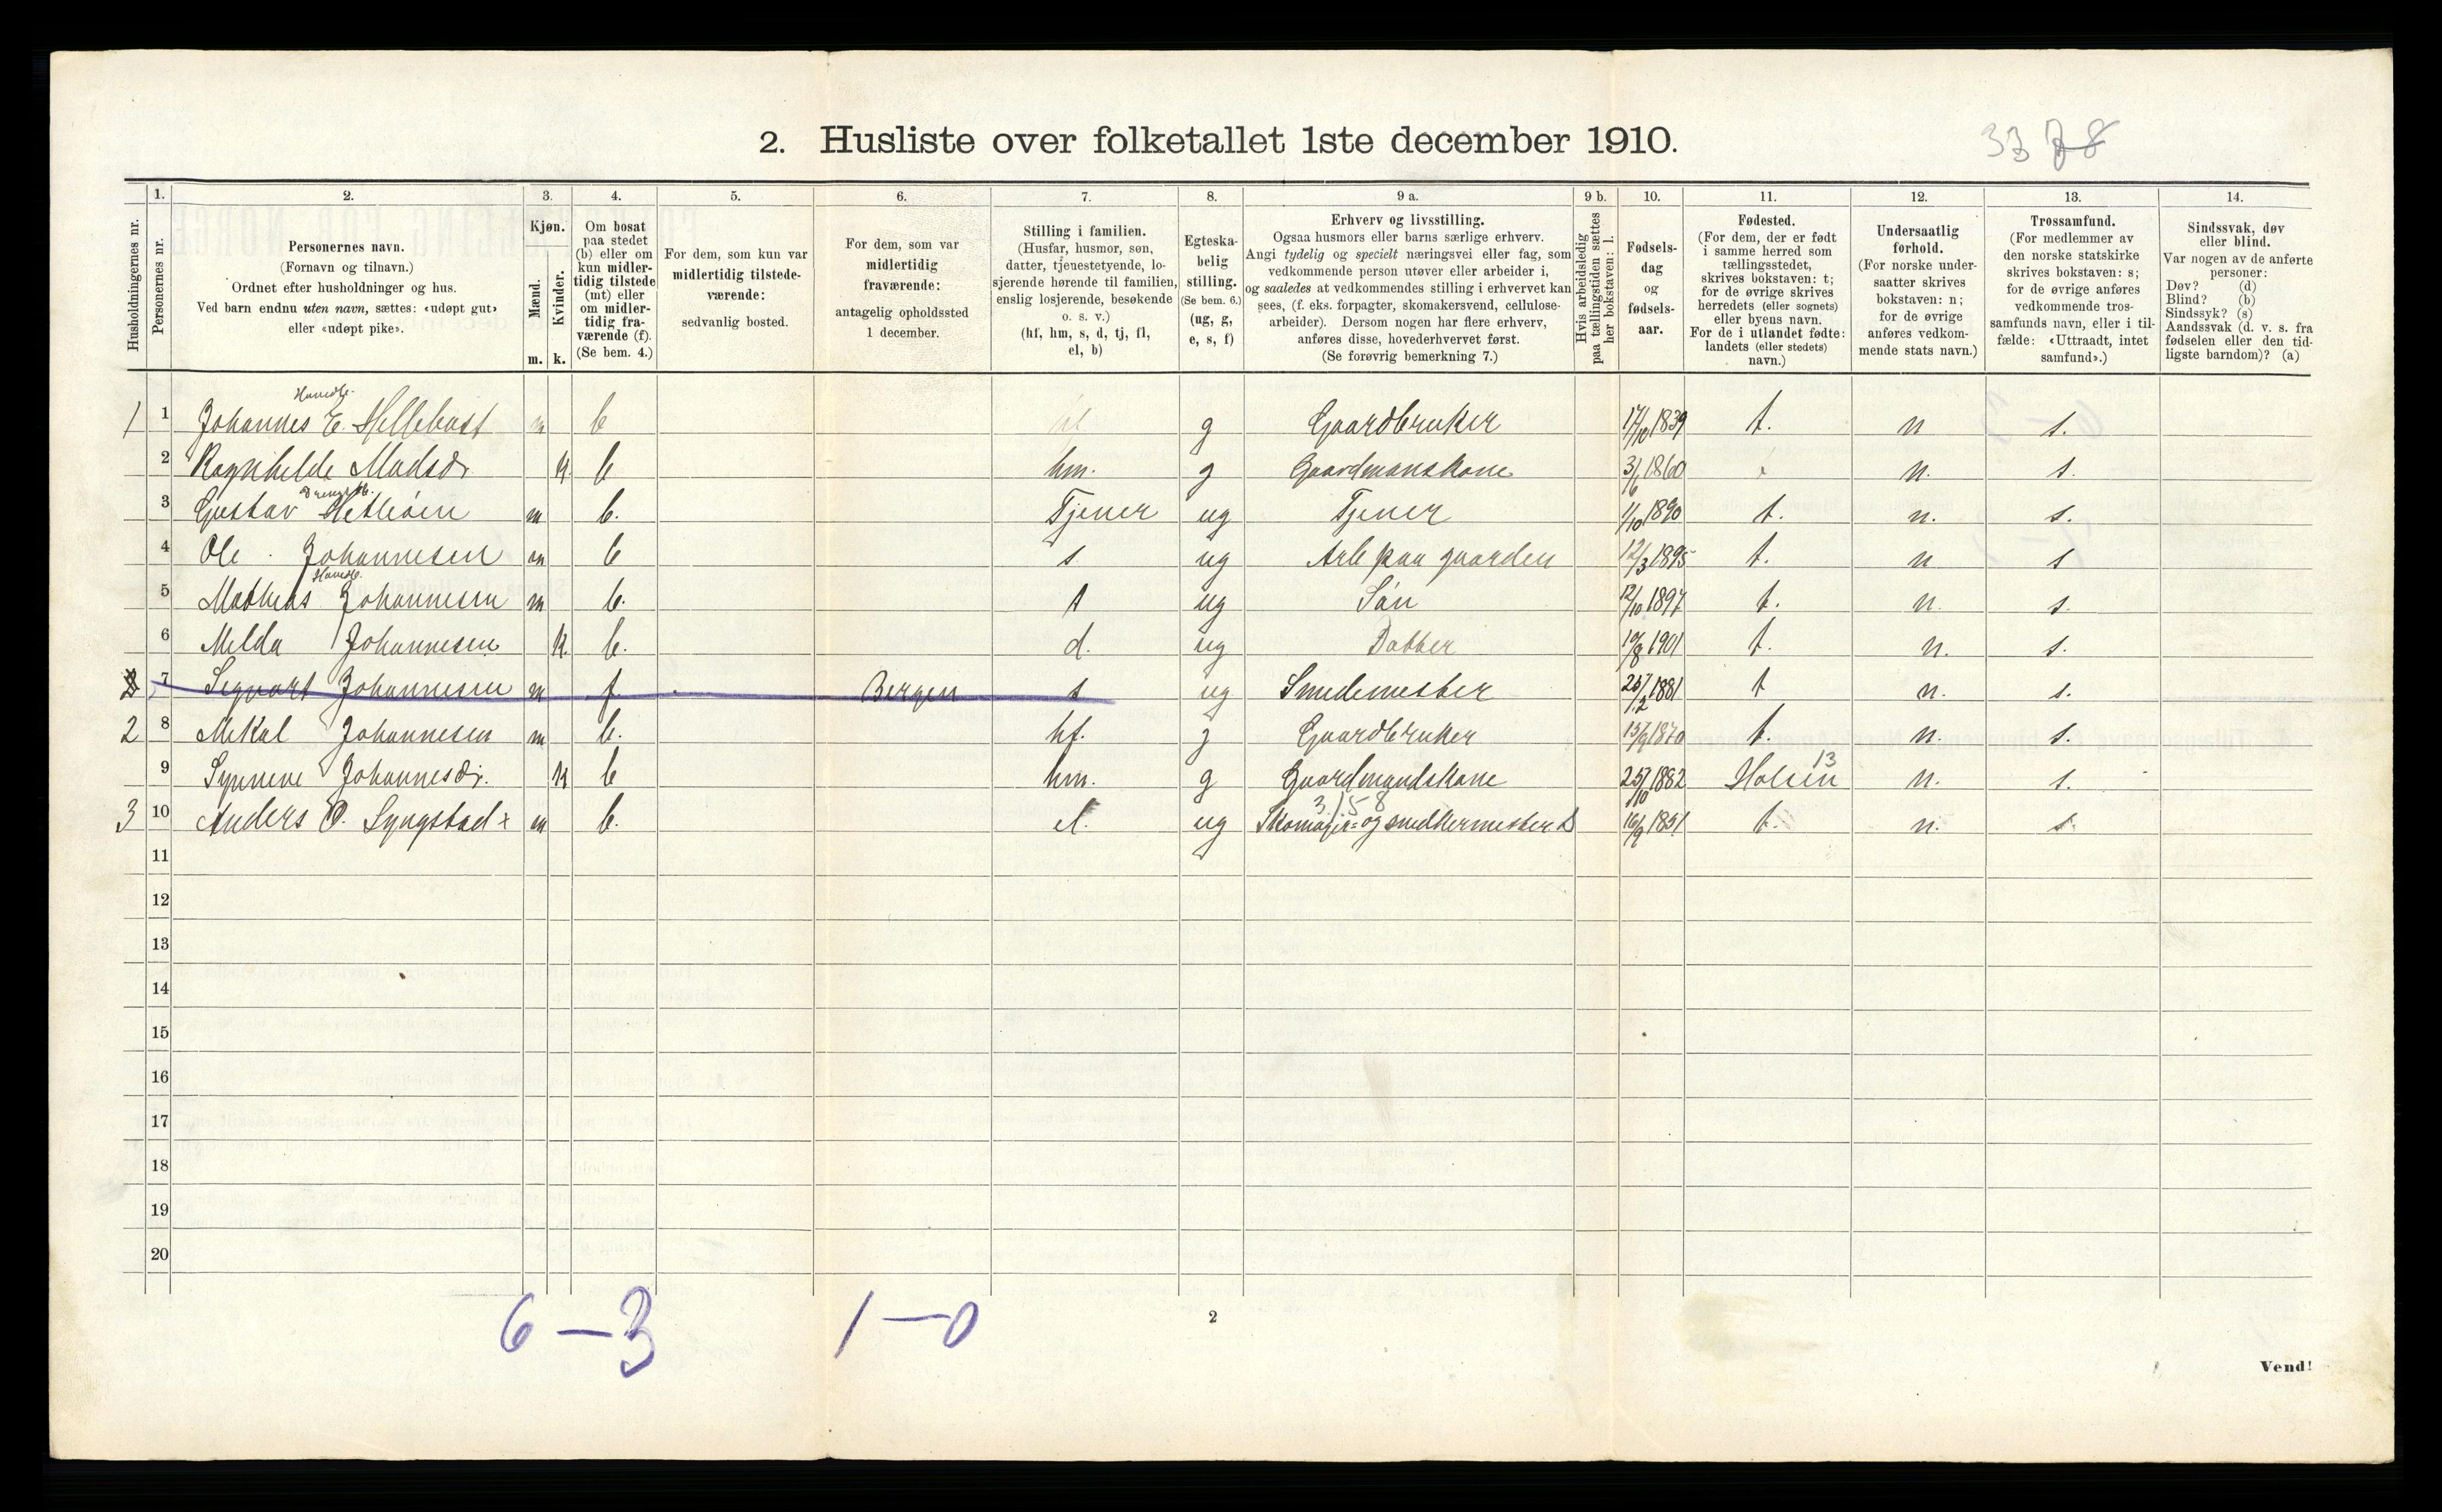 2. Husliste over folketallet 1ste december 1910.
33 78
Husholdningernes nr.
1.
Personernes nr.
2.
Personernes navn.
(Fornavn og tilnavn.)
Ordnet efter husholdninger og hus.
Ved barn endnu uten navn, sættes: «udøpt gut»
eller «udøpt pike».
3.
Kjøn.
Mænd.
m.
Kvinder.
k.
4.
Om bosat
paa stedet
(b) eller om
kun midler-
tidig tilstede
(mt) eller
om midler-
tidig fra-
værende (f).
(Se bem. 4.)
5.
For dem, som kun var
midlertidig tilstede-
værende:
sedvanlig bosted.
6.
For dem, som var
midlertidig
fraværende:
antagelig opholdssted
1 december.
7.
Stilling i familien.
(Husfar, husmor, søn,
datter, tjenestetyende, lo-
sjerende hørende til familien,
enslig losjerende, besøkende
o. s. v.)
(hf, hm, s, d, tj, fl,
el, b)
8.
Egteska-
belig
stilling.
(Se bem. 6.)
(ug, g,
e, s, f)
9 a.
Erhverv og livsstilling.
Ogsaa husmors eller barns særlige erhverv.
Angi tydelig og specielt næringsvei eller fag, som
vedkommende person utøver eller arbeider i,
og saaledes at vedkommendes stilling i erhvervet kan
sees, (f. eks. forpagter, skomakersvend, cellulose-
arbeider). Dersom nogen har flere erhverv,
anføres disse, hovederhvervet først.
(Se forøvrig bemerkning 7.)
9 b.
Hvis arbeidsledig
paa tællingstiden sættes
her bokstaven: l.
10.
Fødsels-
dag
og
fødsels-
aar.
11.
Fødested.
(For dem, der er født
i samme herred som
tællingsstedet,
skrives bokstaven: t;
for de øvrige skrives
herredets (eller sognets)
eller byens navn.
For de i utlandet fødte:
landets (eller stedets)
navn.)
12.
Undersaatlig
forhold.
(For norske under-
saatter skrives
bokstaven: n;
for de øvrige
anføres vedkom-
mende stats navn.)
13.
Trossamfund.
(For medlemmer av
den norske statskirke
skrives bokstaven: s;
for de øvrige anføres
vedkommende tros-
samfunds navn, eller i til-
fælde: «Uttraadt, intet
samfund».)
14.
Sindssvak, døv
eller blind.
Var nogen av de anførte
personer:
Døv? (d)
Blind? (b)
Sindssyk? (s)
Aandssvak (d. v. s. fra
fødselen eller den tid-
ligste barndom)? (a)
1 1 Johannes E. Hellebust m b g Gaardbruker 17/10 1839 t. n s.
2 Ragnhilde Madsdr. k b hm. g Gaardmanskone 3/6 1860 n. s.
3 Gustav m b. Tjener ug Tjener 1/10 1890 t. n. s.
4 Ole Johannesen m b s ug Arb paa gaarden 12/3 1895 t. n s
5 Mathias Johannesen m b. s ug Søn 12/10 1897 t. n. s.
6 Melda Johannesen k. b. d. ug Datter 1901 t. n. s.
7 Sigvart Johannesen m f. Bergen s ug Smedemester 25/12 1881 t n. s.
2 8 Mikal Johannesen m b. hf. g Gaardbruker 15/9 1870 t. n. s.
13
9 Synneve Johannesdr. k b hm. g Gaardmandskone 25/10 1882 Holsen n. s.
3 10 Anders O. Syngstad m b. el. ug Skomager= og snedkermester 16/9 1851 t. n. s.
11
12
13
14
15
16
17
18
19
20
6 — 3 1 — 0
2
Vend!